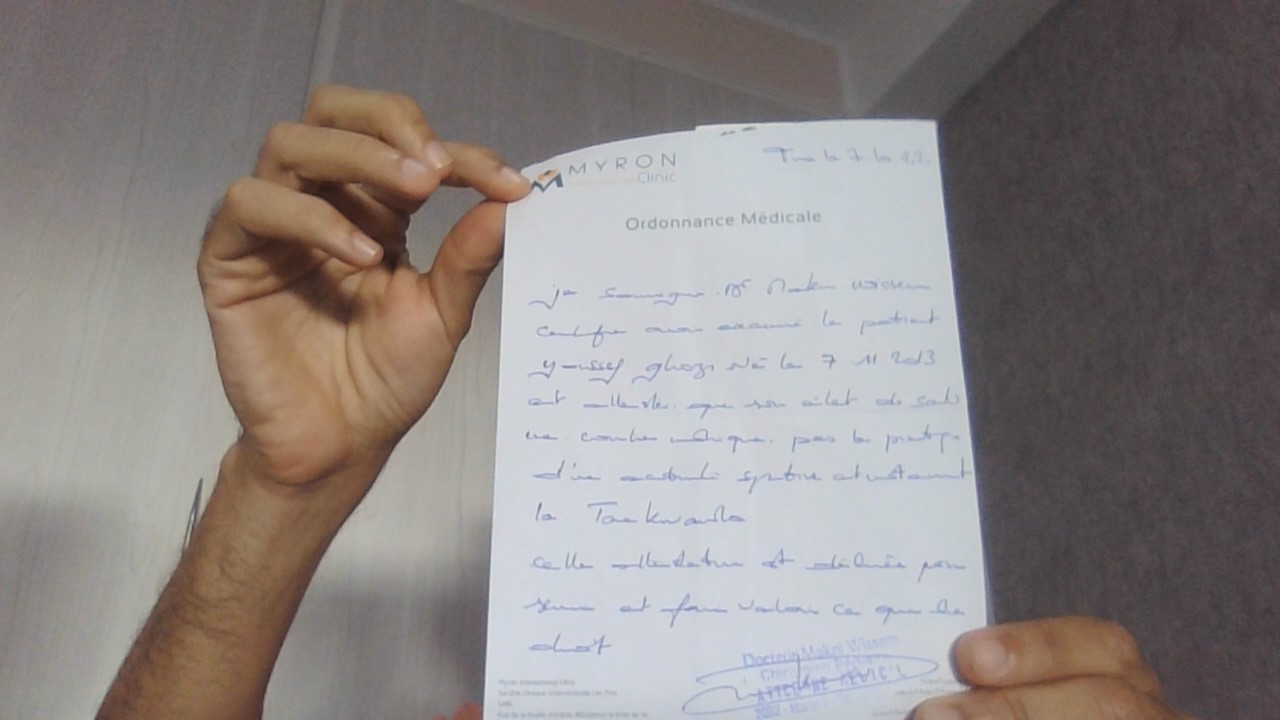 MYRON
Clinic
le 7 22
Ordonnance Médicale
je soussigné Dr Makni Wissem
certifie avoir examiné le patient
Youssef ghozi né le 7 11 2013
et atteste que son état de santé
ne contre indique pas la pratique
d'une activité sportive et notamment
le Taekwondo
cette attestation est délivrée pour
servir et faire valoir ce que de
droit
Docteur Makni Wissem
Myron International Clinic